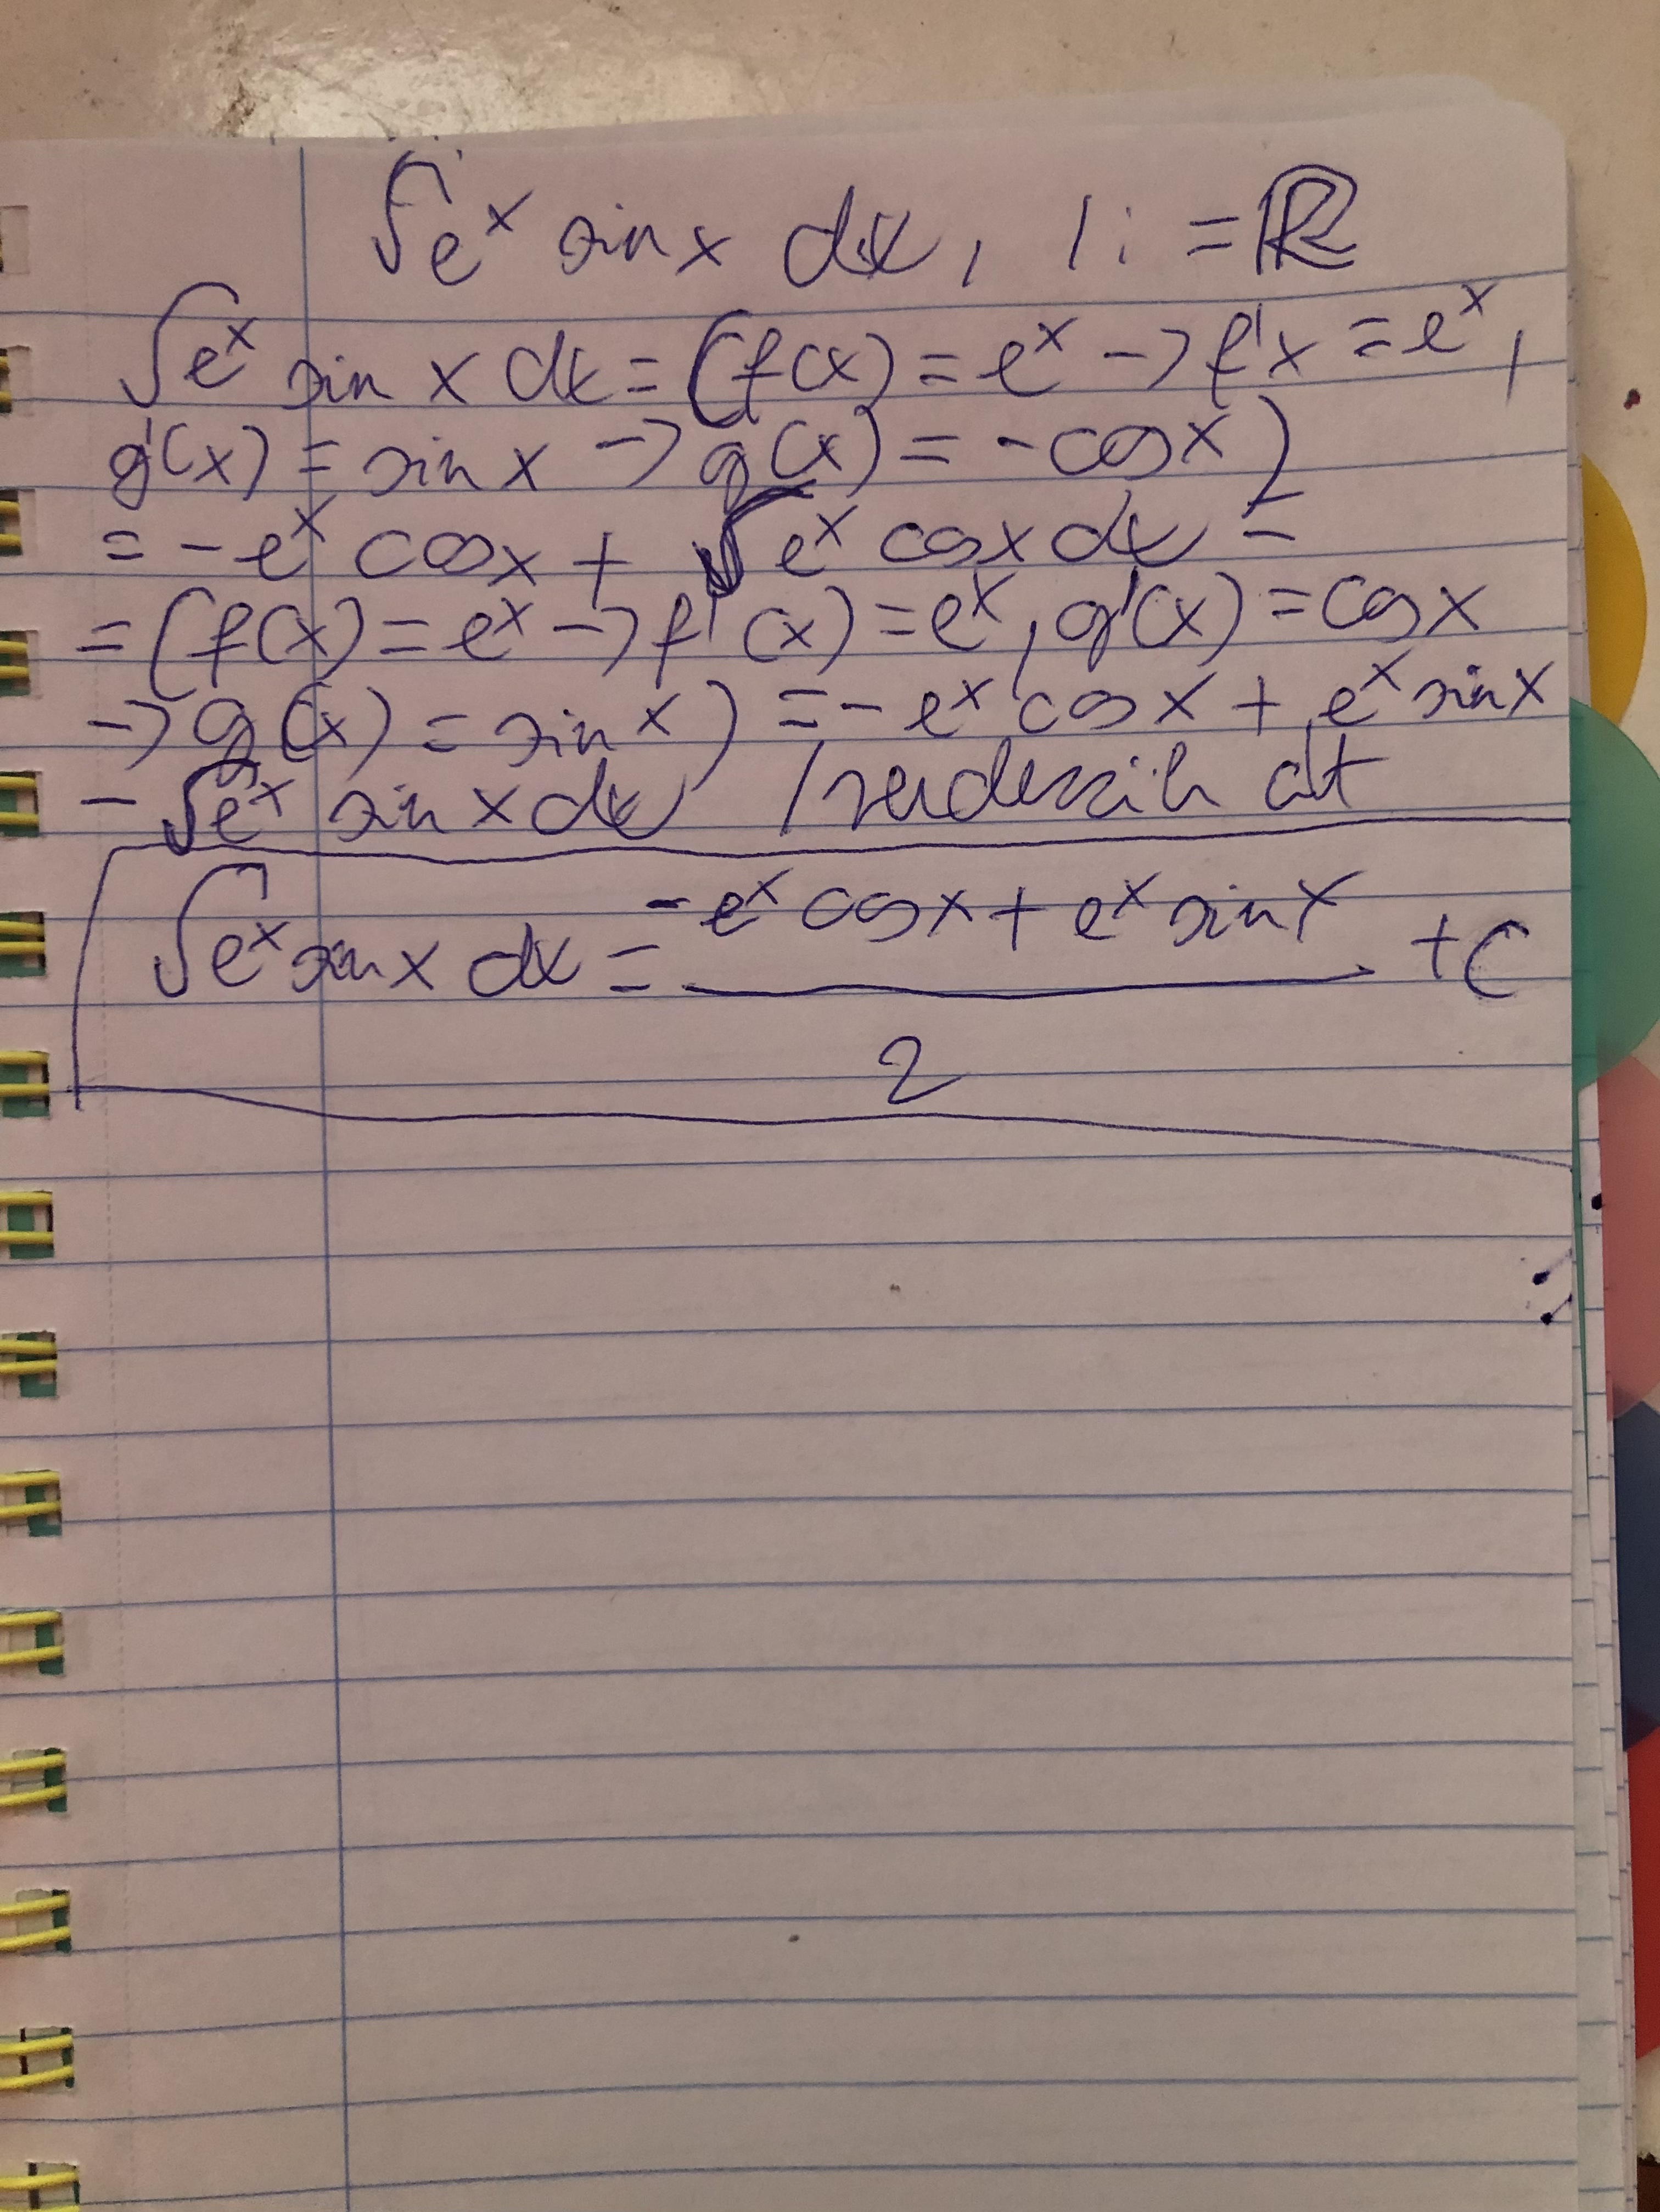 ∫e^x sin x dx, I: = ℝ
∫e^x sin x dx = (f(x) = e^x -> f'x = e^x,
g'(x) = sin x -> g(x) = -cos x)
= -e^x cos x + ∫e^x cos x dx =
= (f(x) = e^x -> f'(x) = e^x, g'(x) = cos x
-> g(x) = sin x) = -e^x cos x + e^x sin x
- ∫e^x sin x dx / rendezzük át
∫e^x sin x dx = (-e^x cos x + e^x sin x)/2 + C